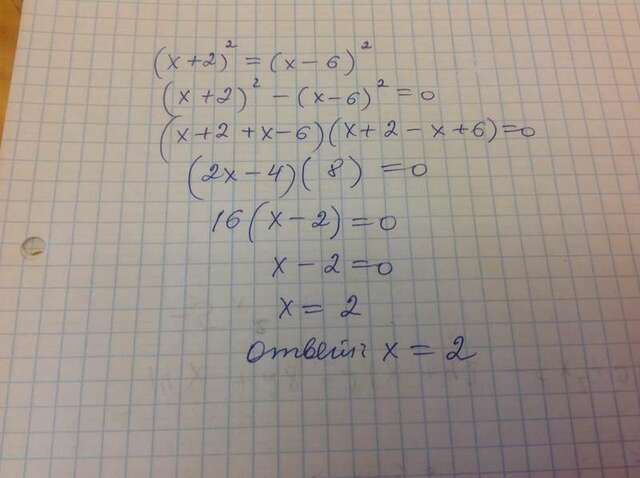 (x+2)² = (x-6)²
(x+2)² - (x-6)² = 0
(x+2+x-6)(x+2-x+6)=0
(2x-4)(8) = 0
16(x-2) = 0
x-2=0
x = 2
ответ: x = 2